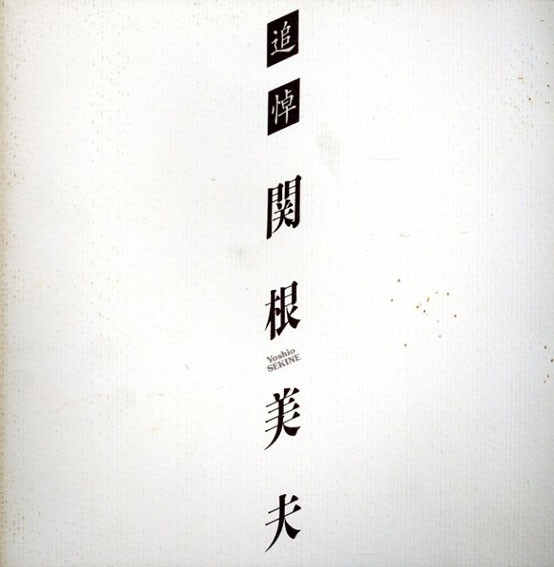 追悼
関根美夫
Yoshio
SEKINE